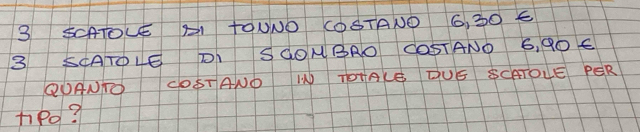 3 SCATOLE DI TONNO COSTANO 6,30 €
3 SCATOLE DI SGOMBRO COSTANO 6,90 €
QUANTO COSTANO IN TOTALE DUE SCATOLE PER
TIPO?